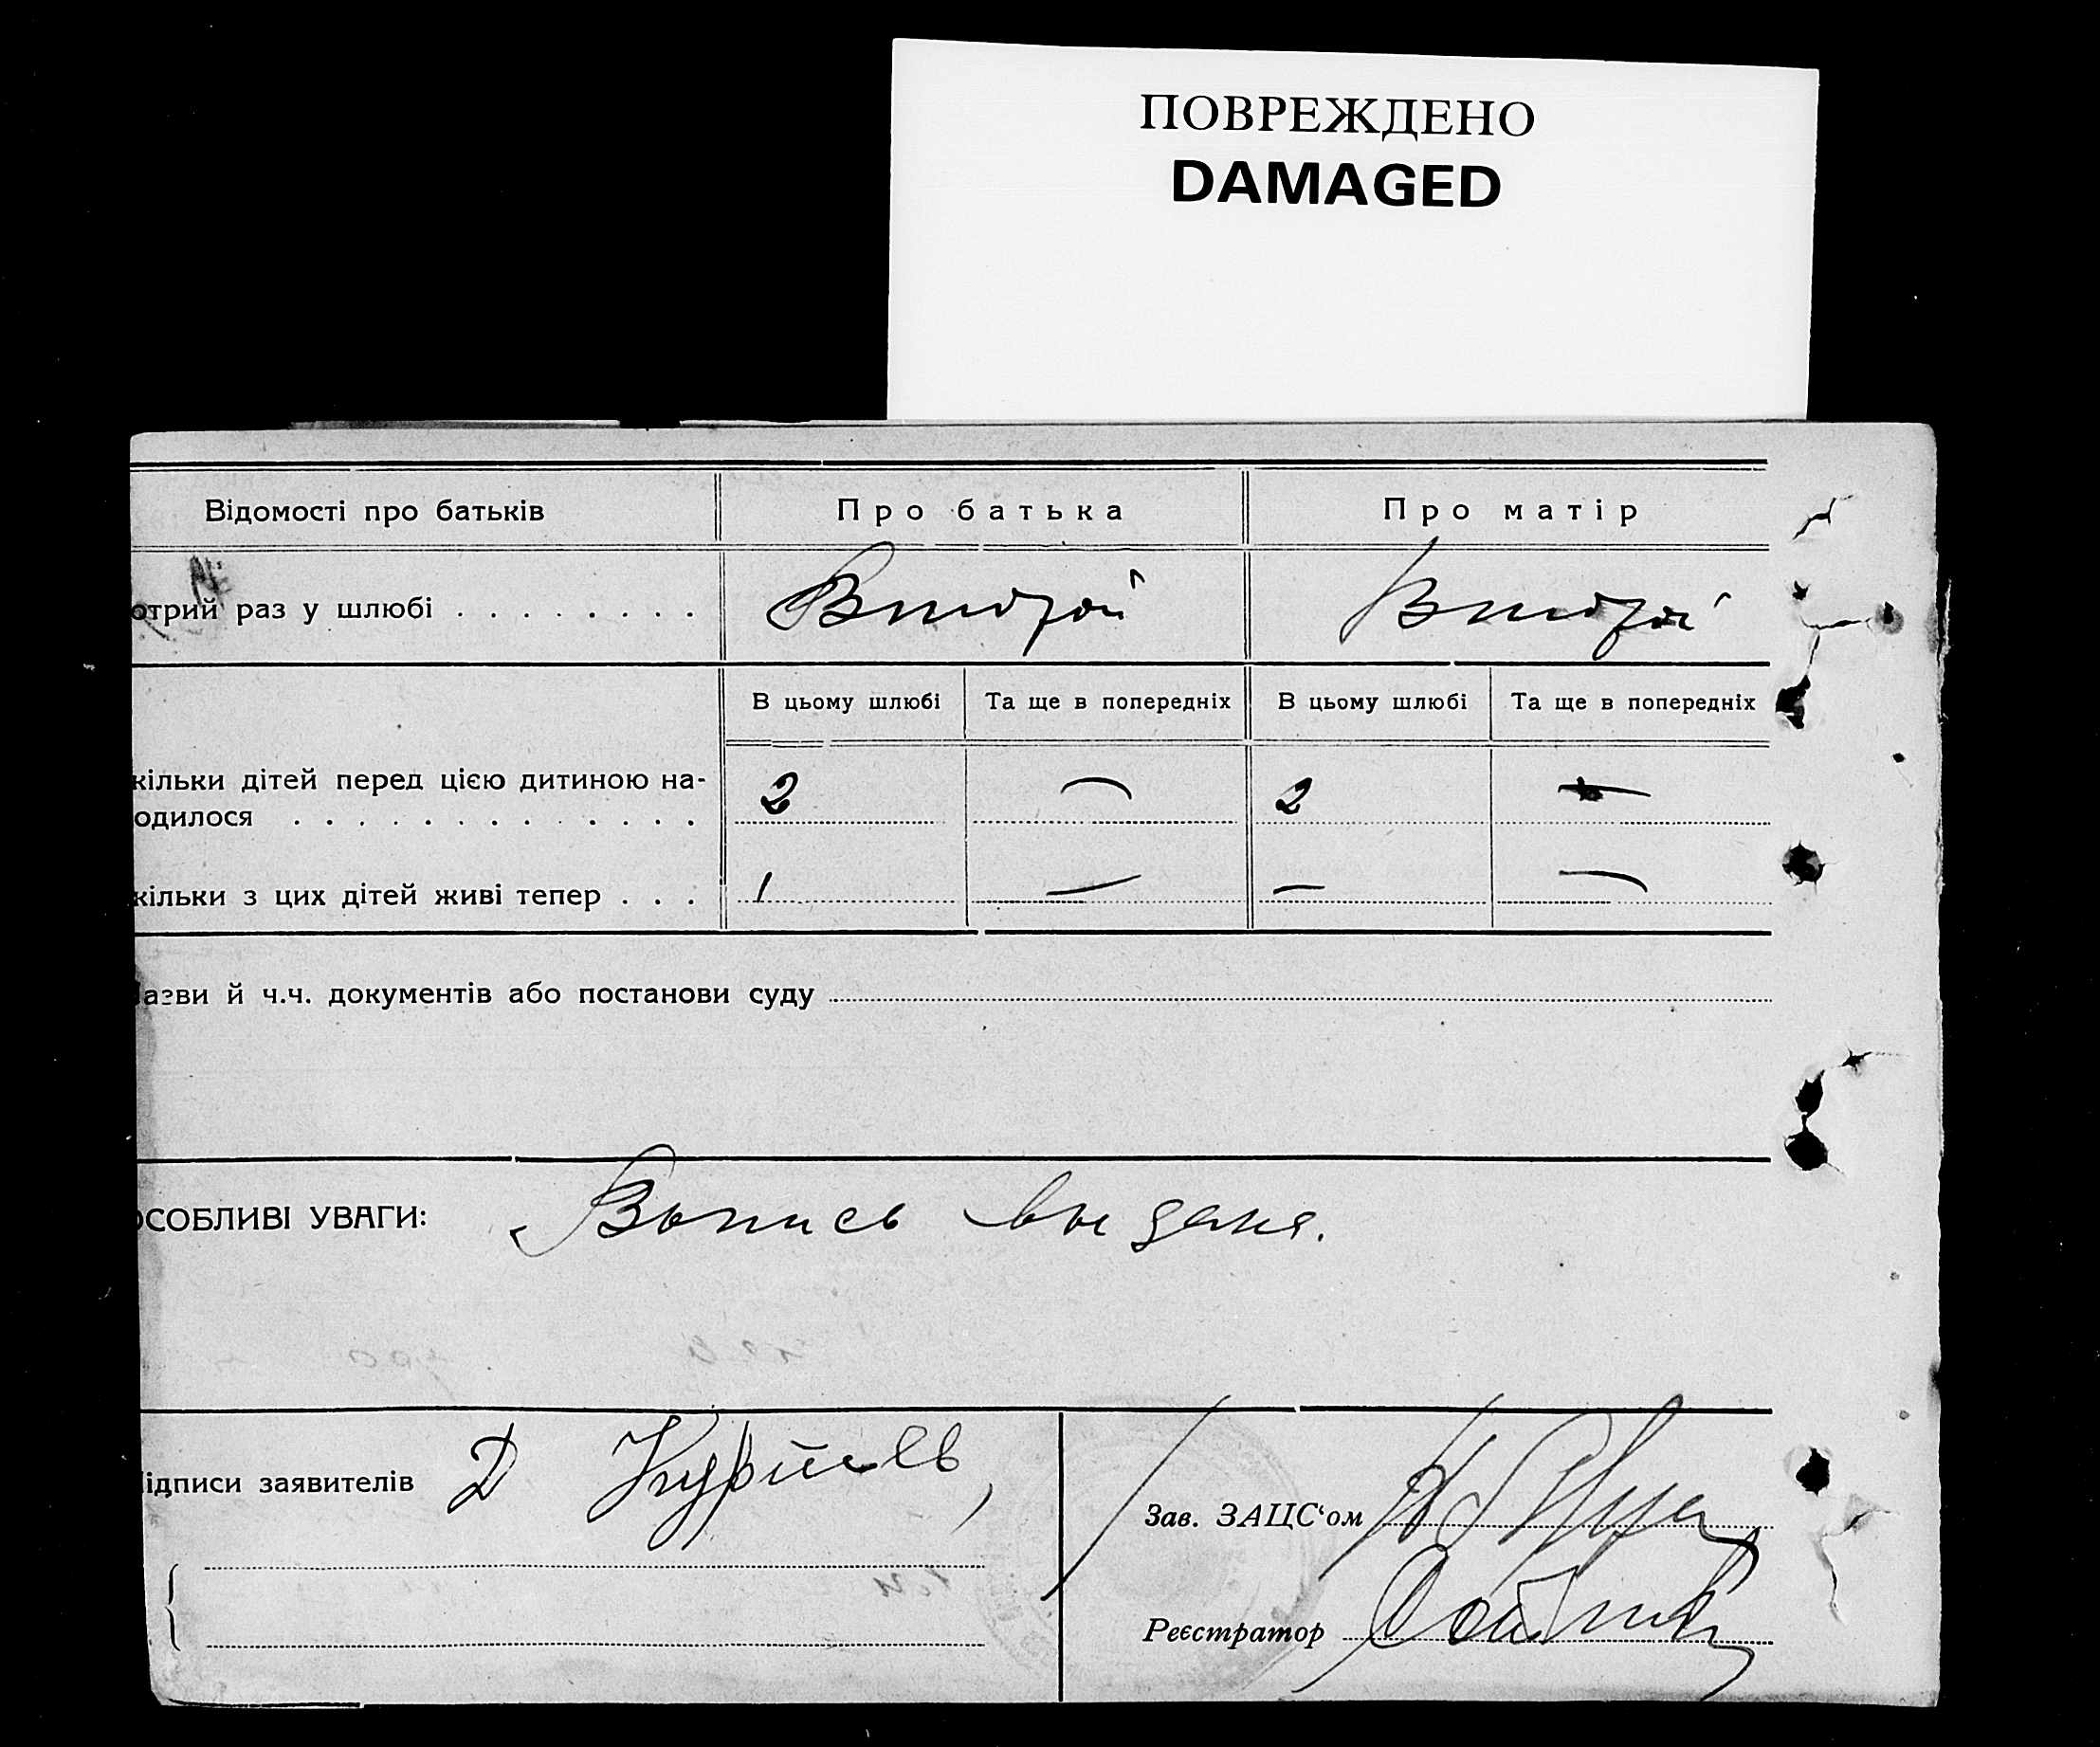 ПОВРЕЖДЕНО
DAMAGED
Відомості про батьків
Про батька
Про матір
отрий раз у шлюбі . . . . . . . .
Второй
Второй
В цьому шлюбі
Та ще в попередніх
В цьому шлюбі
Та ще в попередніх
кільки дітей перед цією дитиною на-
одилося . . . . . . . . . . . . .
2
—
2
—
кільки з цих дітей живі тепер . . .
1
—
—
—
азви й ч.ч. документів або постанови суду
ОСОБЛИВІ УВАГИ:
Выпись выдана.
ідписи заявителів
Д
Зав. ЗАЦС‘ом
Реєстратор